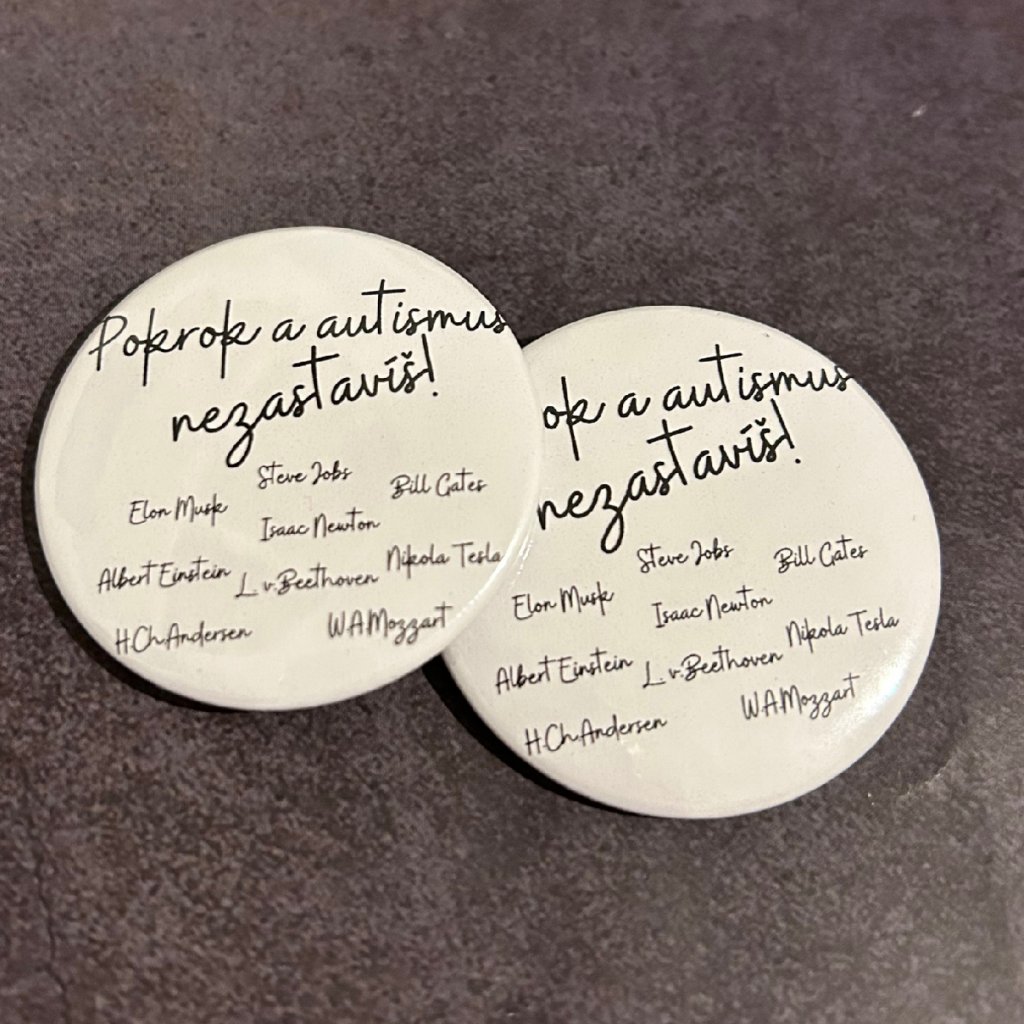 Pokrok a autismus
nezastavíš!
Steve Jobs
Elon Musk
Bill Gates
Isaac Newton
Albert Einstein
L. v. Beethoven
Nikola Tesla
H.Ch.Andersen
W.A.Mozzart
ok a autismus
nezastavíš!
Steve Jobs
Bill Gates
Elon Musk
Isaac Newton
Nikola Tesla
Albert Einstein
L. v. Beethoven
W.A.Mozzart
H.Ch.Andersen